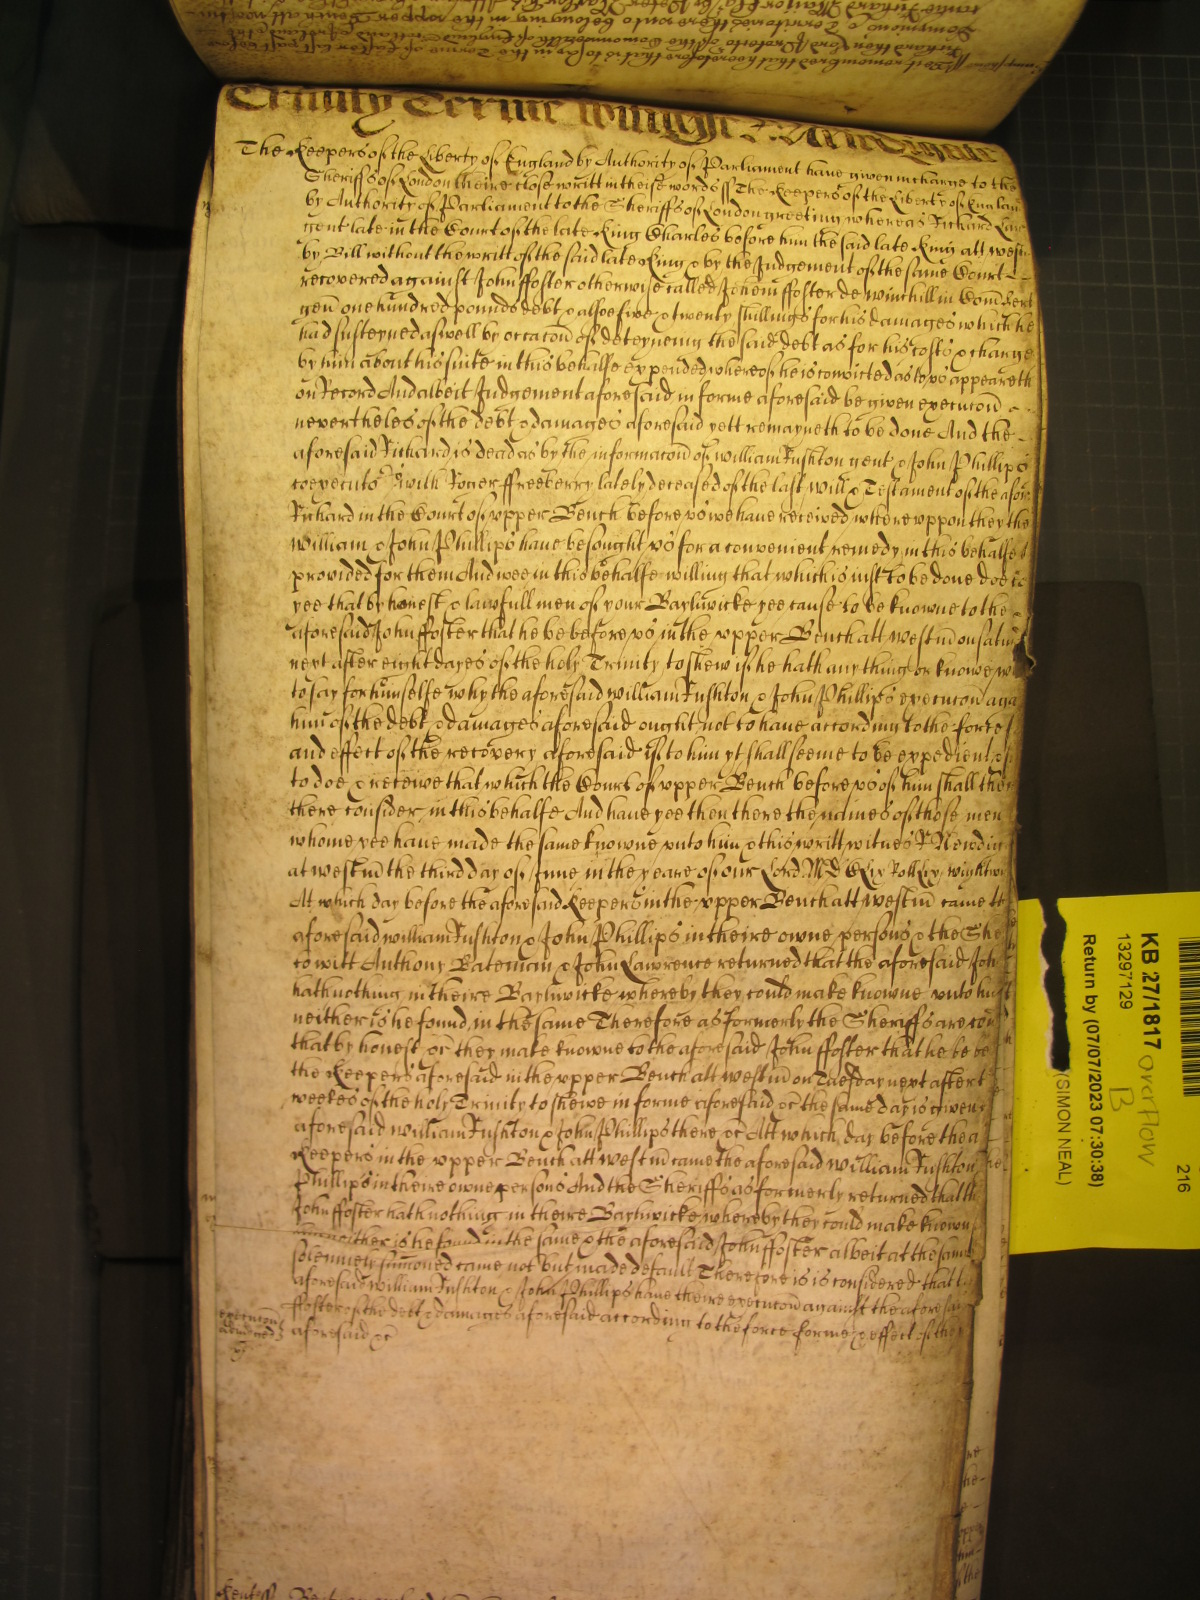 Trinity Terme
The Keepers of the Liberty of England by Authority of Parliament have given in charge to the
Sheriffs of London theire close writt in theise words ss The Keepers of the Liberty of Englan
by Authority of Parliament to the Sheriffs of London greeting whereas Richard
gent late in the Court of the late King Charles before him the said late King att westm
by Bill without the writt of the said late King & by the Judgement of the same Court
recovered against John ffoster otherwise called Johem ffoster de winchill in Com
gen one hundred pounds debt & alsoe five & twenty shillings for his damages which he
had susteyned aswell by occacon of deteyneing the said debt as for his costs & charge
by him about his suite in this behalfe expended whereof he is convicted as to us appeareth
on Record And albeit Judgement aforesaid in forme aforesaid be given execucon
nevertheles of the debt & damages aforesaid yett remayneth to be done And the
aforesaid Richard is dead as by the informacon of william Rushton gent & John Phillips
coexecutors with Roger ffreeberry lately deceased of the last will & Testament of the afore
Richard in the Court of upper Bench before us we have received whereuppon they the
william & John Phillips have besought us for a convenient remedy in this behalfe t
provided for them And wee in this behalfe willing that which is just to be done doe
yee that by honest & lawfull men of your Bayliwicke yee cause to be knowne to the
aforesaid John ffoster that he be before us in the upper Bench att westm on
next after eight dayes of the holy Trinity to shew if he hath any thing or knowe
to say for himselfe why the aforesaid william Rushton & John Phillips execucon aga
him of the debt & damages aforesaid ought not to have according to the force
and effect of the recovery aforesaid if to him yt shall seeme to be expedient
to doe & receive that which the Court of upper Bench before us of him shall then
there consider in this behalfe And have yee then there the names of those men
whome yee have made the same knowne unto him & this writt witnes R Newdig
at westm the third day of June in the yeare of our Lord MDCLix Roll Lix wightw
At which day before the aforesaid Keepers in the upper Bench att westm came th
aforesaid william Rushton & John Phillips in theire owne persons & the She
to witt Anthony Bateman & John Lawrence returned that the aforesaid Joh
hath nothing in theire Bayliwicke whereby they could make knowne unto hi
neither is he found in the same Therefore as formerly the Sheriffs are
that by honest &c they make knowne to the aforesaid John ffoster that he be be
the Keepers aforesaid in the upper Bench att westm on Tuesday next after t
weekes of the holy Trinity to shewe in forme aforesaid &c the same day is given
aforesaid william Rushton & John Phillips there &c Att which day before the a
Keepers in the upper Bench att westm came the aforesaid william Rushton
Phillips in theire owne persons And the Sheriffs as formerly returned that th
John ffoster hath nothing in theire Bayliwicke whereby they could make known
neither is he found in the same & the aforesaid John ffoster albeit at the same
solemnely summoned came not but made default Therefore is is considered that th
aforesaid william Rushton & John Phillips have theire execucon against the afore
ffoster of the debt & damages aforesaid according to the force forme & effect of the
aforesaid &c
execucon
KB 27/1817 overflow
13297129
B
Return by (07/07/2023 07:30:38)
(SIMON NEAL)
216